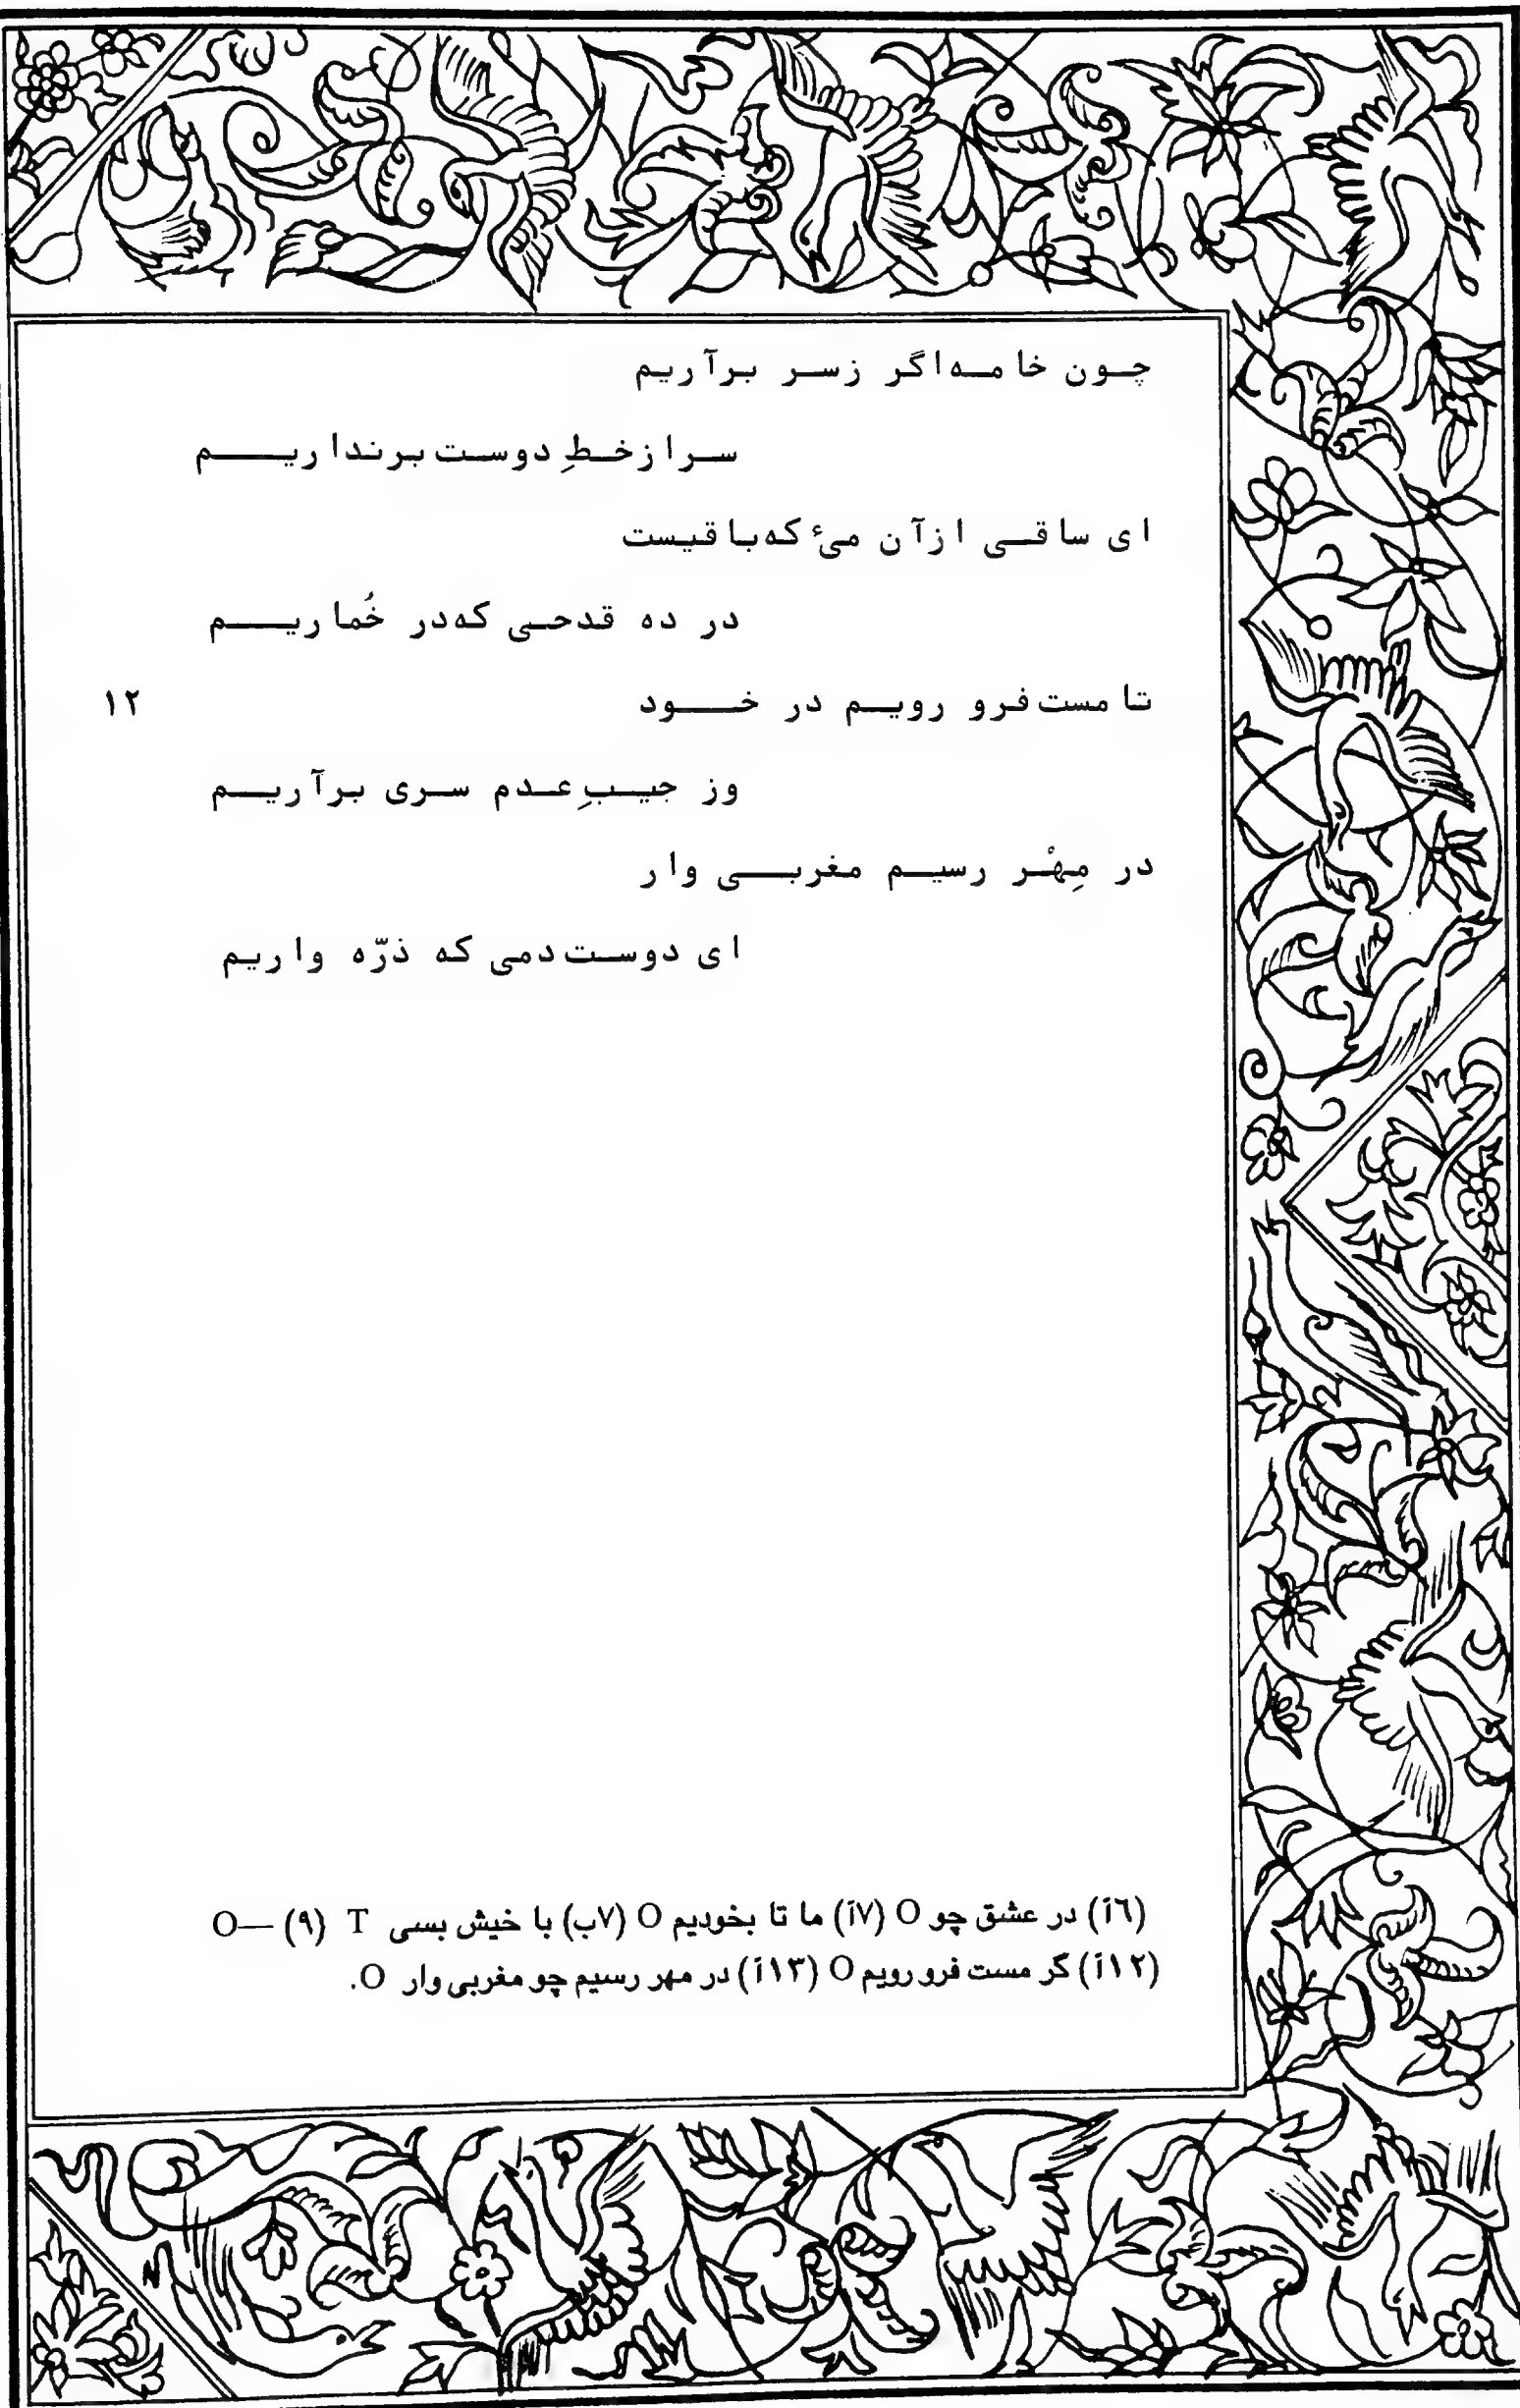 چون خامه اگر زسر برآریم
سر از خطِ دوست برنداریم
ای ساقی ازآن میٔ که باقیست
در ده قدحی که در خُماریم
تا مست فرو رویم در خود ۱۲
وز جیبِ عدم سری برآریم
در مِهْر رسیم مغربی وار
ای دوست دمی که ذرّه واریم
(٦آ) در عشق چو O (٧آ) ما تا بخودیم O (٧ب) با خیش بسی T (۹) —O
(۱۲آ) گر مست فرو رویم O (۱۳آ) در مهر رسیم چو مغربی وار O.